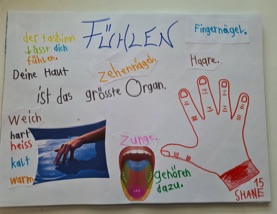 FÜHLEN
der Tastsinn
lässt dich
fühlen.
Fingernägel.
Zehennägel.
Haare.
Deine Haut
ist das grösste Organ.
Weich
hart
heiss
kalt
warm
Zunge.
gehören
dazu.
15
SHANE